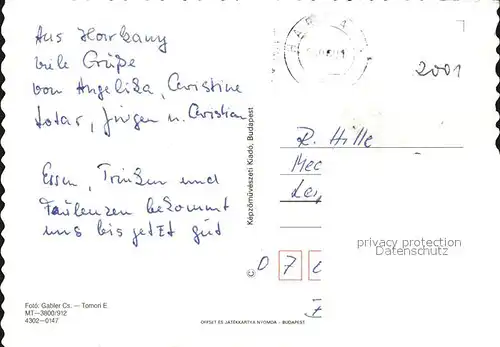 Aus Harkany
viele Grüße
von Angelika, Christine
Lotar, Jürgen u. Christian
Essen, Trinken und
Faulenzen bekommt
uns bis jetzt gut
Fotó: Gabler Cs. — Tomori E
MT—3800/912
4302—0147
Képzőművészeti Kiadó, Budapest
OFFSET ÉS JÁTÉKKÁRTYA NYOMDA · BUDAPEST
2001
R. Hille
privacy protection
Datenschutz
D 7